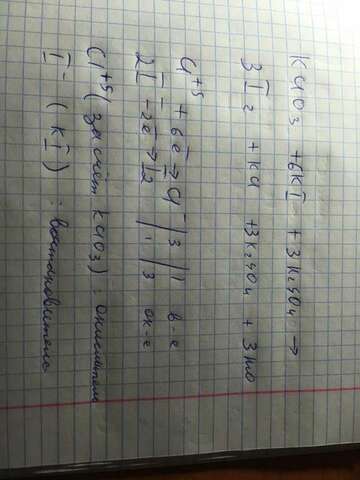 KClO3 + 6KI + 3K2SO4 →
3I2 + KCl + 3K2SO4 + 3H2O
Cl+5 + 6e → Cl- | 3 | 1 в-е
2I- - 2e → I2 | 1 | 3 ок-е
Cl+5 (за счёт KClO3) : окислитель
I- (KI) : восстановитель